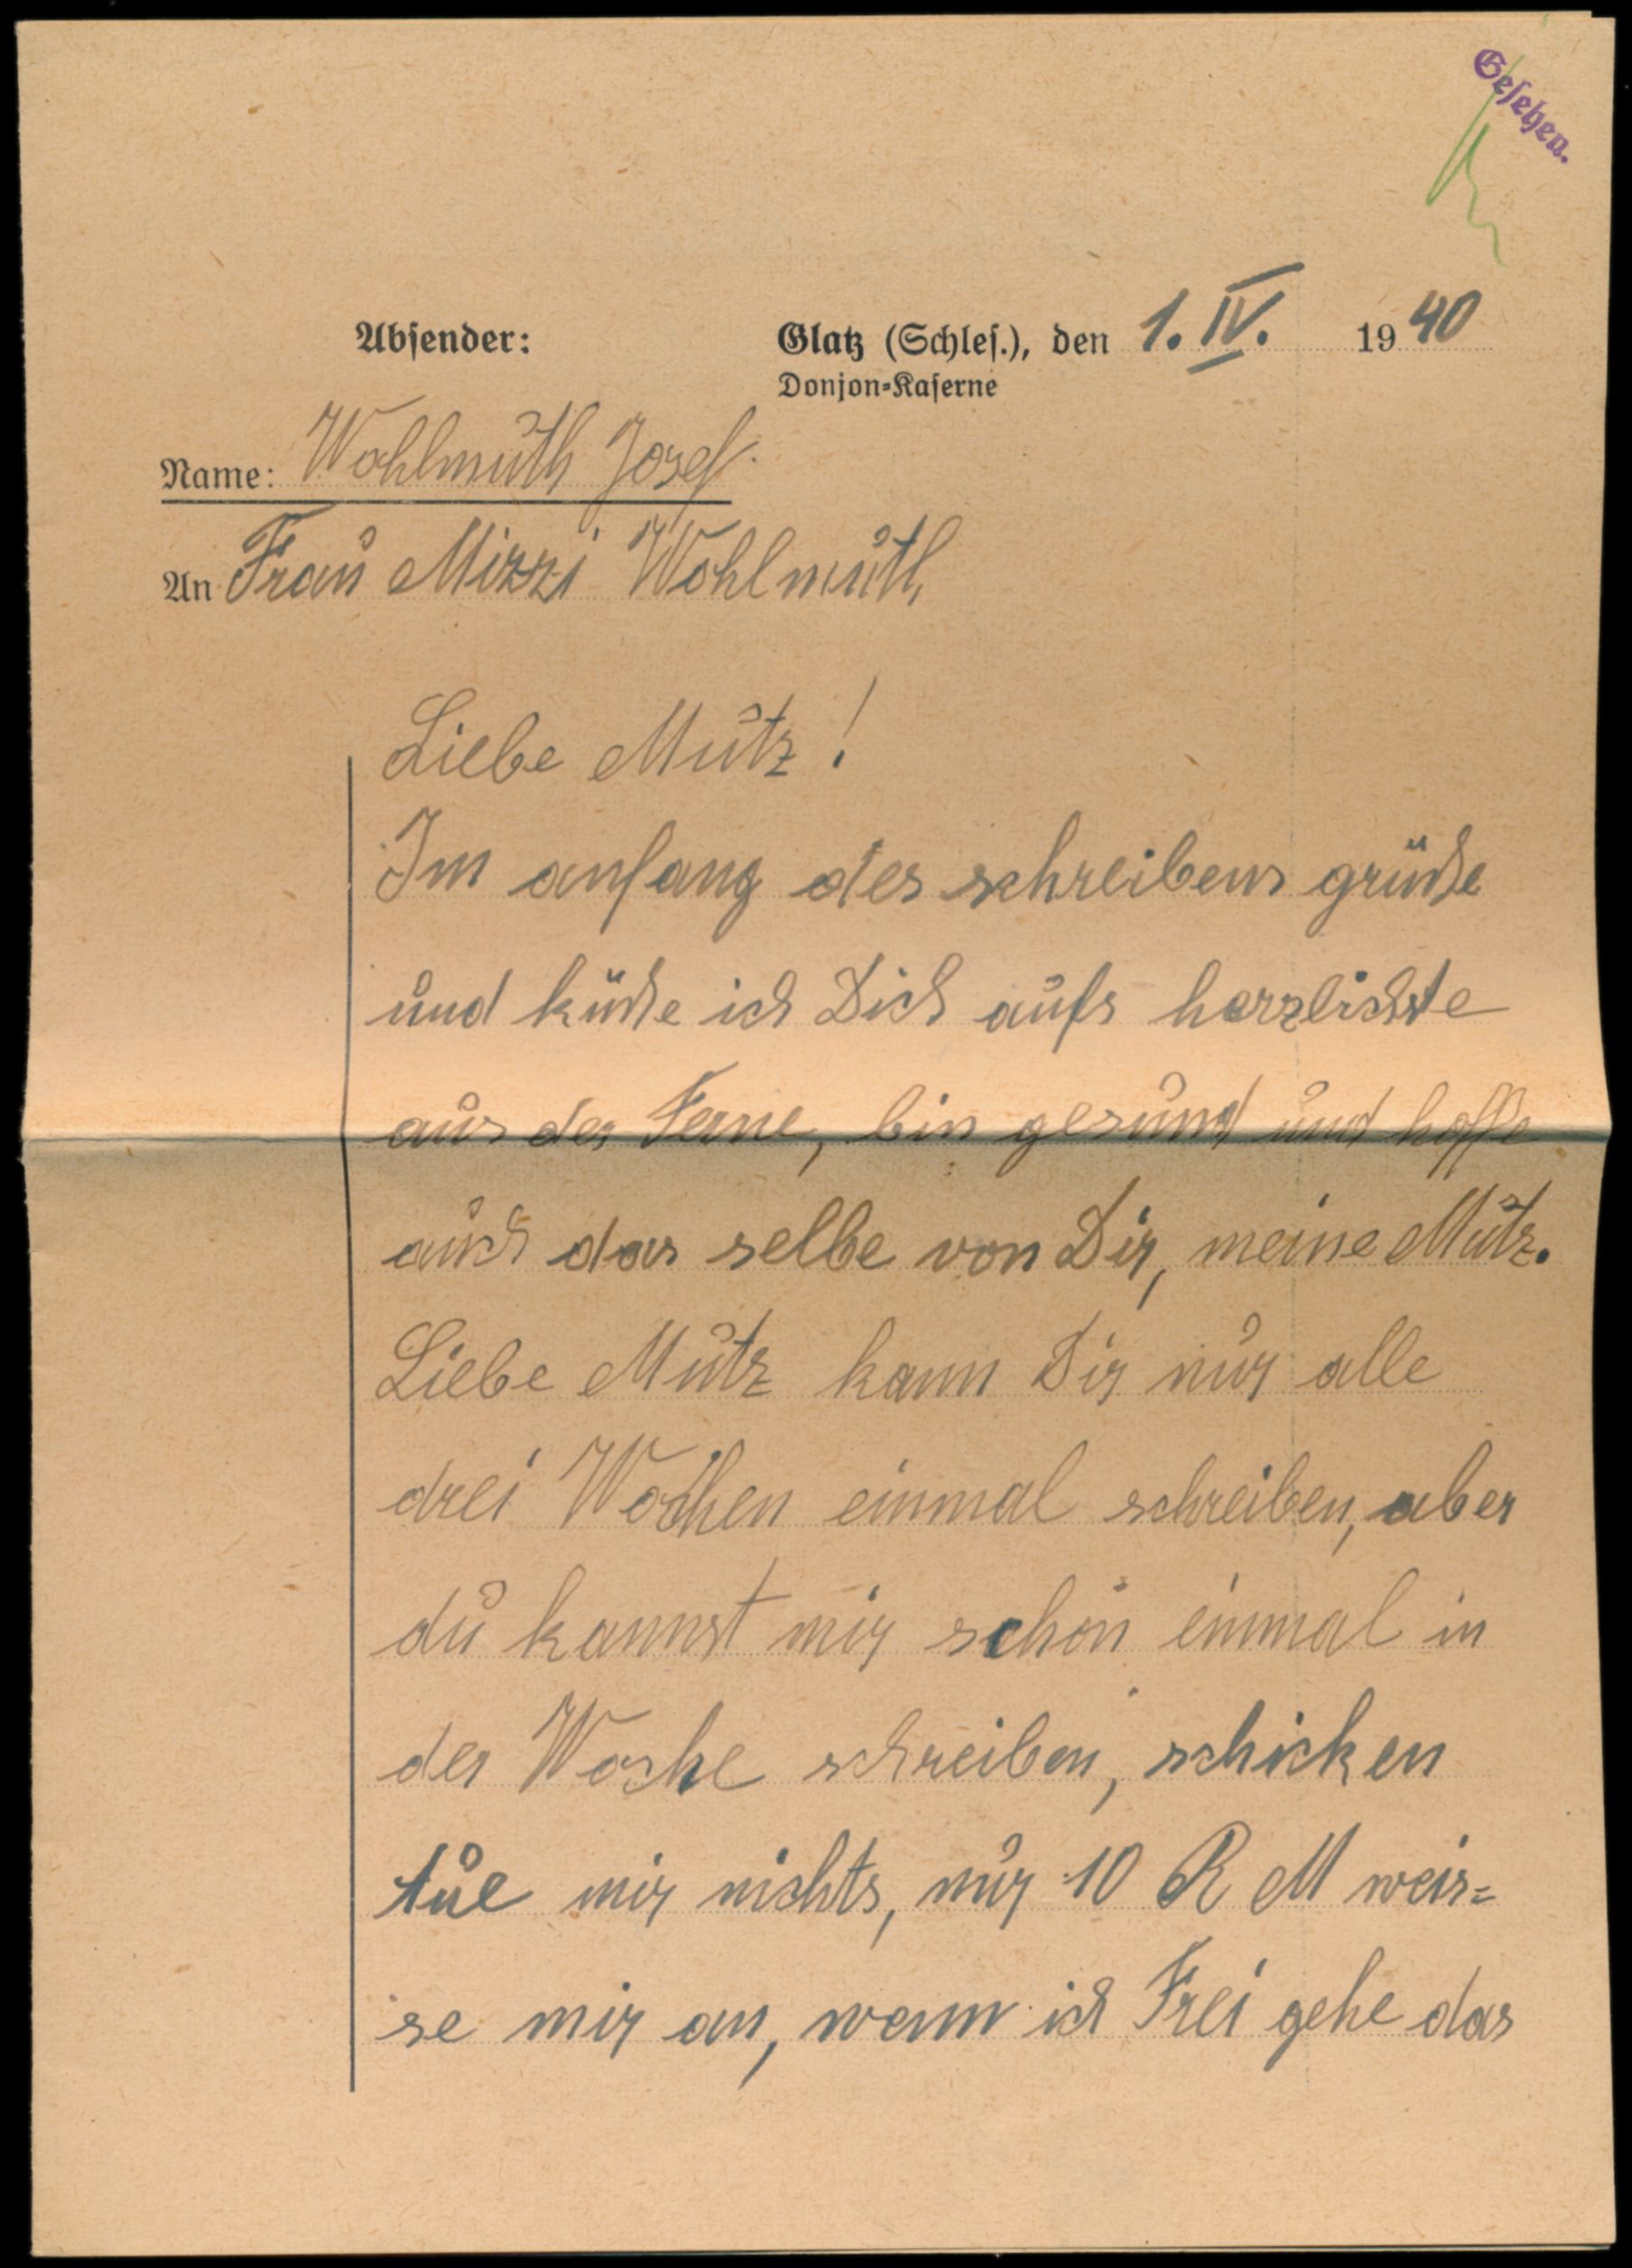 Gesehen.
Absender:
Glatz (Schles.), den 1. IV. 1940
Donjon-Kaserne
Name: Wohlmuth Josef.
An Frau Mizzi Wohlmuth
Liebe Mutz!
Im anfang des schreibens grüße
und küße ich Dich aufs herzlichste
aus der Ferne, bin gesund und hoffe
auch das selbe von Dir, meine Mutz.
Liebe Mutz kann Dir nur alle
drei Wochen einmal schreiben, aber
du kannst mir schon einmal in
der Woche schreiben, schicken
tue mir nichts, nur 10 R M weis=
se mir an, wenn ich Frei gehe das